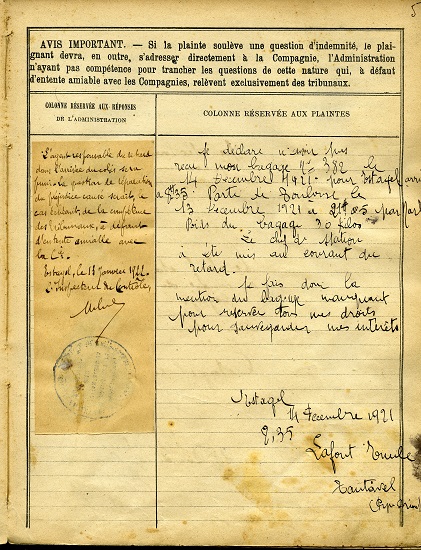 5
AVIS IMPORTANT. — Si la plainte soulève une question d'indemnité, le plai-
gnant devra, en outre, s'adresser directement à la Compagnie, l'Administration
n'ayant pas compétence pour trancher les questions de cette nature qui, à défaut
d'entente amiable avec les Compagnies, relèvent exclusivement des tribunaux.
COLONNE RÉSERVÉE AUX RÉPONSES
DE L'ADMINISTRATION
L'agent responsable de ce retard
dans l'arrivée du colis sera
puni. La question de réparation
du préjudice causé serait, le
cas échéant, de la compétence
des tribunaux, à défaut
d'entente amiable avec
la Cie.
Estagel, le 18 Janvier 1922
L'Inspecteur du Contrôle,
COLONNE RÉSERVÉE AUX PLAINTES
Je déclare n'avoir pas
reçu mon bagage n° 382 le
14 Décembre 1921 pour Estagel
Parti de Toulouse le
13 Décembre 1921 à 21h05
Poids du bagage 30 kilos
Le chef de station
a été mis au courant du
retard.
Je fais donc la
mention du bagage manquant
pour réserver tous mes droits
pour sauvegarder mes intérêts
Estagel
14 Décembre 1921
9,35
Lafont
Tautavel